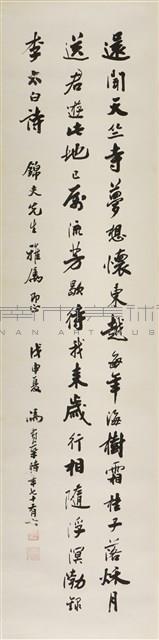 還聞天竺寺夢想懷東越每年海樹霜桂子落秋月
送君遊此地已屬流芳歇待我來歲行相隨浮溟渤錄
李太白詩 錦夫先生雅屬即正 戊申夏 馮時年七十有八